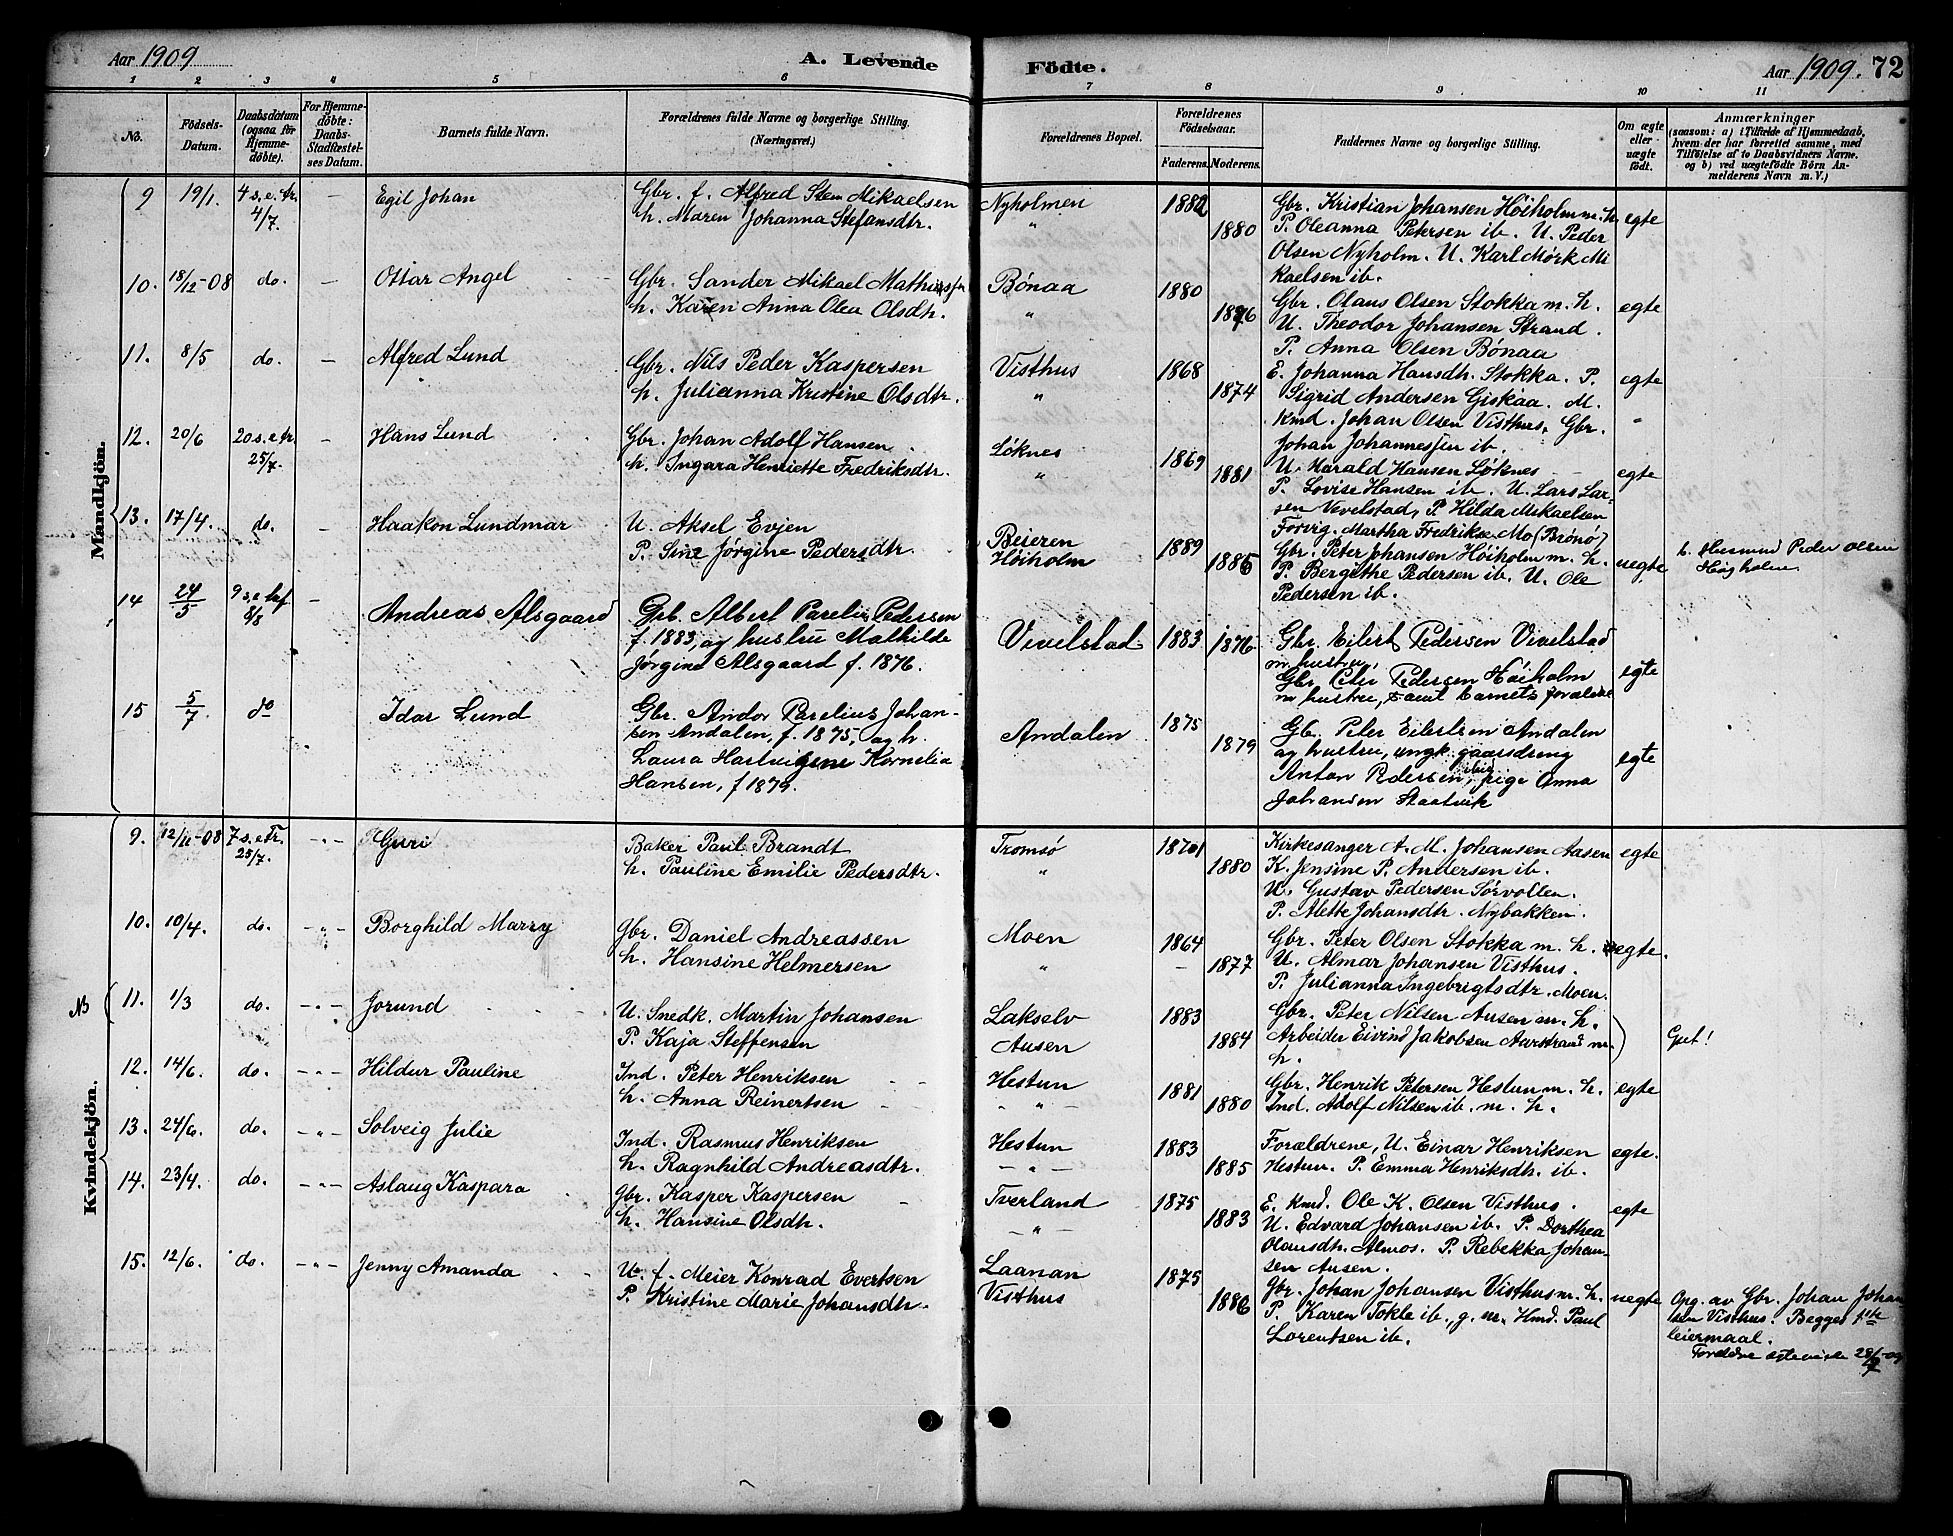 Aar 1909 A. Levende Födte. Aar 1909. 72
1 2 3 4 5 6 7 8 9 10 11
No. Födsels-Datum. Daabsdatum (ogsaa för Hjemmedöbte). For Hjemmedöbte: Daabs-Stadfæstelses Datum. Barnets fulde Navn. Forældrenes fulde Navne og borgerlige Stilling. (Næringsvei.) Forældrenes Bopæl. Forældrenes Födselsaar. Faderens. Moderens. Faddernes Navne og borgerlige Stilling. Om ægte eller uægte födt. Anmærkninger (saasom: a) i Tilfælde af Hjemmedaab, hvem der har forrettet samme, med Tilföielse af to Daabsvidners Navne. og b) ved uægtefödte Börn Anmelderens Navn m. V.)
Mandkjön.
9 19/1. 4 s. e. tr. 4/7. – Egil Johan
Gbr. f. Alfred Sten Mikaelsen
h. Maren Johanna Stefansdtr.
Nyholmen "
1882 1880
Gbr. Kristian Johansen Höiholm m. h.
P. Oleanna Petersen ib. U. Peder
Olsen Nyholm. U. Karl Mørk Mi
kaelsen ib.
egte
10. 18/12-08 do. – Ottar Angel
Gbr. Sander Mikael Mathiassen
h. Karen Anna Olea Olsdtr.
Bønaa "
1880 1876
Gbr. Olaus Olsen Stokka m. h.
U. Theodor Johansen Strand.
P. Anna Olsen Bønaa
egte
11. 8/5 do. – Alfred Lund
Gbr. Nils Peder Kaspersen
h. Julianna Kristine Olsdtr.
Visthus "
1868 1874
E. Johanna Hansdh. Stokka. P.
Sigrid Andersen Giskaa. M.
Kmd. Johan Olsen Visthus, Gbr.
Johan Johannessen ib.
egte "
12. 20/6 20 s. e. tr. 25/7. – Hans Lund
Gbr. Johan Adolf Hansen
h. Ingara Henriette Fredriksdtr.
Løknes "
1869 1881
U. Harald Hansen Løknes
P. Lovise Hansen ib. U. Lars Lar-
sen Vevelstad, P. Hilda Mikaelsen
Forvig. Martha Fredrikse Mo (Brønø)
egte
13. 17/4. do. – Haakon Lundmar
U. Aksel Evjen
P. Sine Jørgine Pedersdtr.
Beieren
Høiholm
1889 1885
Gbr. Peter Johansen Höiholm m. h.
P. Bergithe Pedersen ib. U. Ole
Pedersen ib.
uegte
Husmand Peder Olsen
Høgholm
14 24/5 9 s. e. tref 8/8 – Andreas Alsgaard
Grb. Albert Parelius Pedersen
f. 1883, og hustru Mathilde
Jørgine Alsgaard f. 1876.
Vivelstad
1883 1876
Gbr. Eilert Pedersen Vivelstad
m hustru,
Gbr Peter Pedersen Höiholm
m hustru, samt barnets forældre
egte
15 5/7. do Idar Lund
Gbr. Andor Parelius Johan-
sen Andalen, f. 1875, og h.
Laura Hartvigine Kornelia
Hansen, f 1879.
Andalen
1875 1879
Gb. Peter Eilertsen Andalen
og hustru, ungk. gaardsdreng
Anton Pedersen ibid, pige Anna
Johansen Staatvik
egte
Kvindekjön.
9. 12/11-08 7 s. e Tr. 25/7. -"- Guri
Baker Paul Brandt
h. Pauline Emilie Pedersdtr.
Tromsø "
1871 1880
Kirkesanger A. M. Johansen Aasen
K. Jensine P. Andersen ib.
U. Gustav Pedersen Sörvollen.
P. Alette Johansdtr. Nybakken.
egte
10. 10/4. do. -"- Borghild Marry
Gbr. Daniel Andreassen
h. Hansine Helmersen
Moen "
1864 – 1877
Gbr. Peter Olsen Stokka m. h.
U. Almar Johansen Visthus.
P. Julianna Ingebrigtsdtr. Moen.
egte.
NB 11. 1/3 do. -"- Jorund
U. Snedk. Martin Johansen
P. Kaja Steffensen
Lakselv
Ausen
1883 1884
Gbr. Peter Nilsen Ausen m. h.
Arbeider Eivind Jakobsen Aurstrand m.
h.
Gut!
12. 14/6. do. -"- Hildur Pauline
Ind. Peter Henriksen
h. Anna Reinertsen
Hestun - " -
1881 1880
Gbr. Henrik Petersen Hestun m. h.
Ind. Adolf Nilsen ib. m. h.
egte
13. 24/6. do. -"- Solveig Julie
Ind. Rasmus Henriksen
h. Ragnhild Andreasdtr.
Hestun - " -
1883 1885
Forældrene, U. Einar Henriksen
Hestun. P. Emma Henriksdh. ib.
egte.
14. 23/4. do. -"- Aslaug Kaspara
Gbr. Kasper Kaspersen
h. Hansine Olsdh.
Tverland - " -
1875 1883
E. kmd. Ole K. Olsen Visthus.
U. Edvard Johansen ib. P. Dorthea
Olausdh. Almos. P. Rebekka Johan-
sen Ausen.
egte
15. 12/6. do. -"- Jenny Amanda
U. f. Meier Konrad Evertsen
P. Kristine Marie Johansdh.
Laanan
Visthus
1875 1886
Gbr. Johan Johansen Visthus m. h.
P. Karen Tokle ib., g. m. Hmd. Paul
Lorentsen ib.
uegte
Opg. av Gbr. Johan Johan
sen Visthus. Begges 1ste
leiermaal.
28/7-09